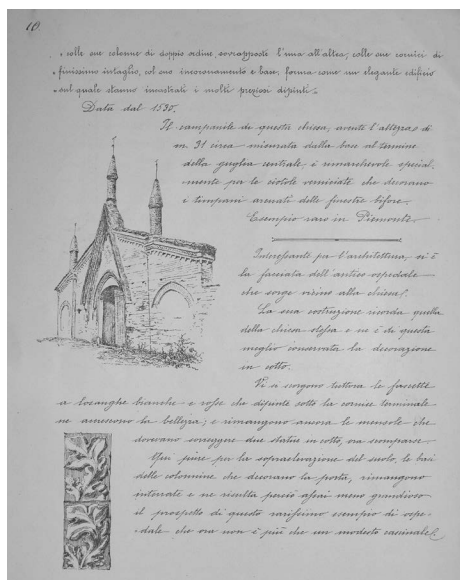 10.
" colle sue colonne di doppio ordine, sovrapposte l'una all'altra, colle sue cornici di
" finissimo intaglio, col suo incoronamento e base, forma come un elegante edificio
" sul quale stanno incastrati i molti preziosi dipinti "
Data dal 1530.
Il campanile di questa chiesa, avente l'altezza di
m. 31 circa misurata dalla base al termine
della guglia centrale, è rimarchevole special-
mente per le ciotole verniciate che decorano
i timpani arcuati delle finestre bifore.
Esempio raro in Piemonte.
Interessante per l'architettura, vi è
la facciata dell'antico ospedale
che sorge vicino alla chiesa.
La sua costruzione ricorda quella
della chiesa stessa e ne è di questa
meglio conservata la decorazione
in cotto.
Vi si scorgono tuttora le fascette
a losanghe bianche e rosse che dipinte sotto la cornice terminale
ne accrescono la bellezza; e rimangono ancora le mensole che
dovevano sorreggere due statue in cotto, ora scomparse.
Qui pure per la sopraelevazione del suolo, le basi
delle colonnine che decorano la porta, rimangono
interrate e ne risulta perciò assai meno grandioso
il prospetto di questo rarissimo esempio di ospe-
dale che ora non è più che un modesto cascinale.